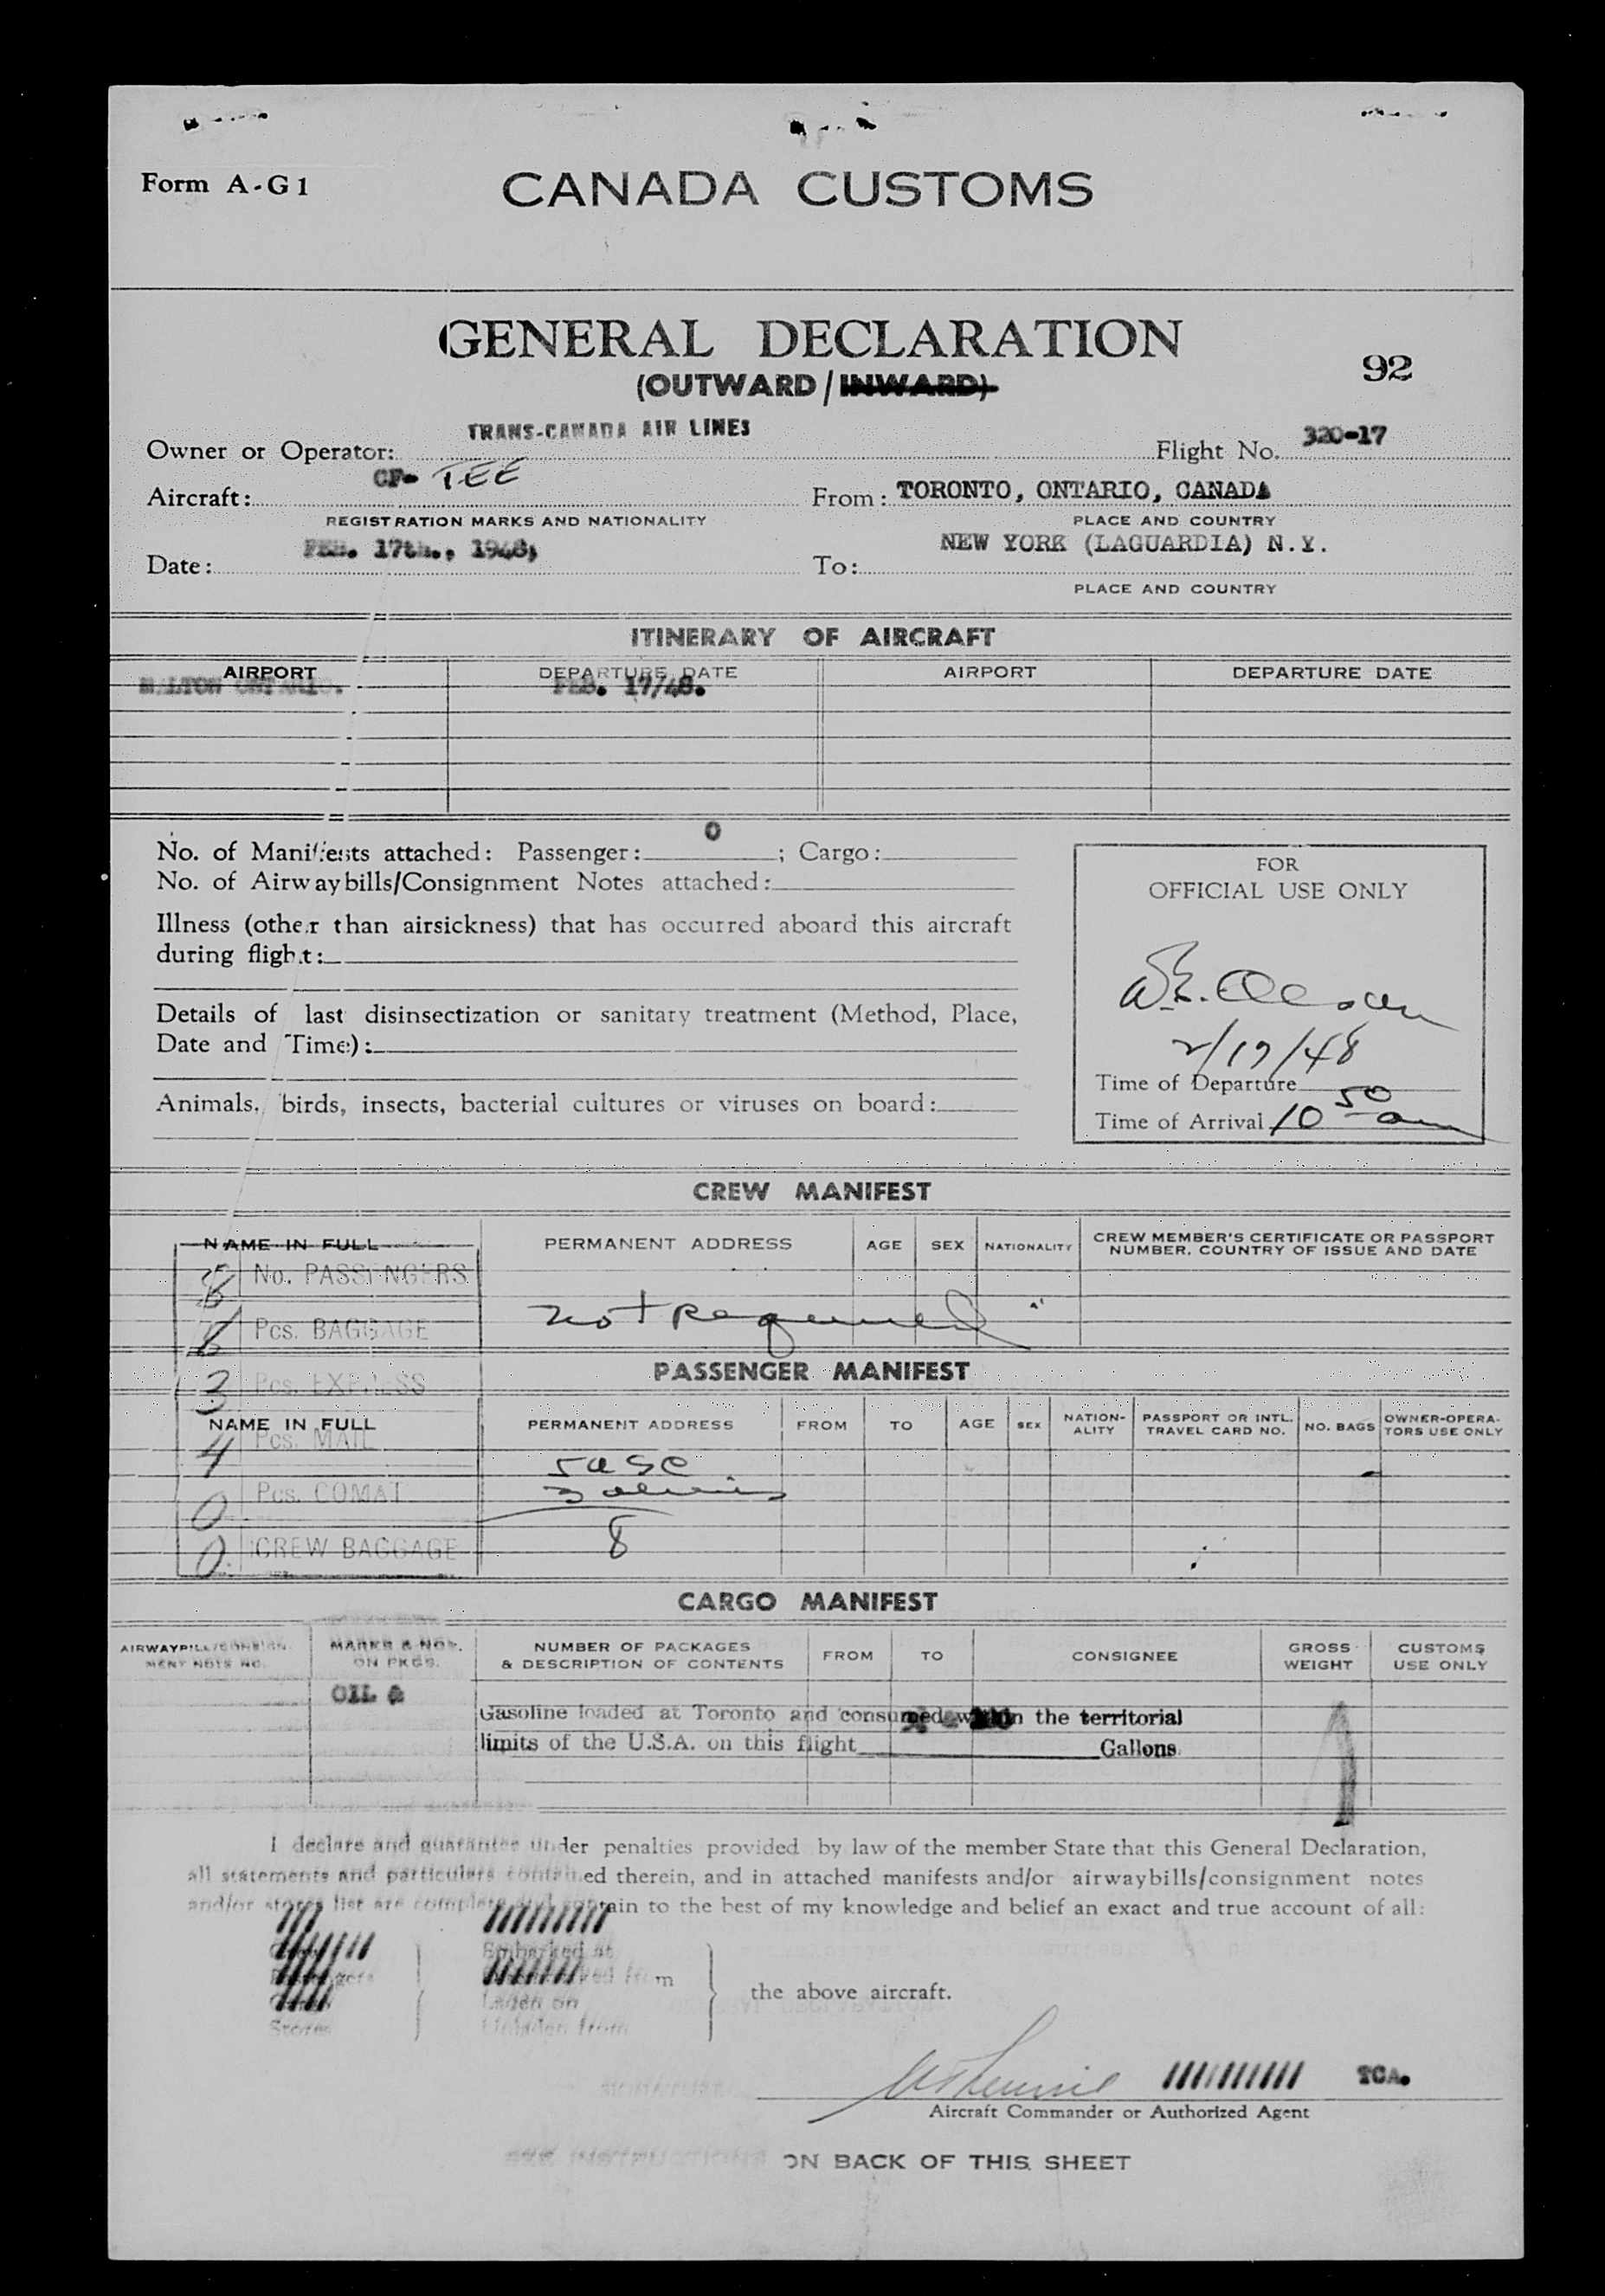 Form A-G1
CANADA CUSTOMS
GENERAL DECLARATION
(OUTWARD/INWARD)
92
Owner or Operator: TRANS-CANADA AIR LINES
Flight No. 320-17
Aircraft: CF- TEE
From: TORONTO, ONTARIO, CANADA
REGISTRATION MARKS AND NATIONALITY
PLACE AND COUNTRY
Date: FEB. 17th., 1948,
To: NEW YORK (LAGUARDIA) N.Y.
PLACE AND COUNTRY
ITINERARY OF AIRCRAFT
AIRPORT DEPARTURE DATE AIRPORT DEPARTURE DATE
MALTON ONTARIO. FEB. 17/48.
No. of Manifests attached: Passenger: 0 ; Cargo:
No. of Airwaybills/Consignment Notes attached:
Illness (other than airsickness) that has occurred aboard this aircraft
during flight:
Details of last disinsectization or sanitary treatment (Method, Place,
Date and Time):
Animals, birds, insects, bacterial cultures or viruses on board:
FOR
OFFICIAL USE ONLY
2/17/48
Time of Departure
Time of Arrival 10 50 am
CREW MANIFEST
NAME IN FULL PERMANENT ADDRESS AGE SEX NATIONALITY CREW MEMBER'S CERTIFICATE OR PASSPORT
NUMBER, COUNTRY OF ISSUE AND DATE
8 No. PASSENGERS
not required
Pcs. BAGGAGE
PASSENGER MANIFEST
3 Pcs. EXPRESS
NAME IN FULL PERMANENT ADDRESS FROM TO AGE SEX NATION-
ALITY PASSPORT OR INTL.
TRAVEL CARD NO. NO. BAGS OWNER-OPERA-
TORS USE ONLY
4 Pcs. MAIL
5 USC
3 aliens
0 Pcs. COMAT
8
0 CREW BAGGAGE
CARGO MANIFEST
AIRWAYBILL/CONSIGN-
MENT NOTE NO. MARKS & NOS.
ON PKGS. NUMBER OF PACKAGES
& DESCRIPTION OF CONTENTS FROM TO CONSIGNEE GROSS
WEIGHT CUSTOMS
USE ONLY
OIL &
Gasoline loaded at Toronto and consumed within the territorial
limits of the U.S.A. on this flight Gallons
I declare and guarantee under penalties provided by law of the member State that this General Declaration,
all statements and particulars contained therein, and in attached manifests and/or airwaybills/consignment notes
and/or stores list are complete and contain to the best of my knowledge and belief an exact and true account of all:
Crew
Passengers
Cargo
Stores
Embarked at
Disembarked from
Laden on
Unladen from
the above aircraft.
SIGNATURE
TCA.
Aircraft Commander or Authorized Agent
SEE INSTRUCTIONS ON BACK OF THIS SHEET